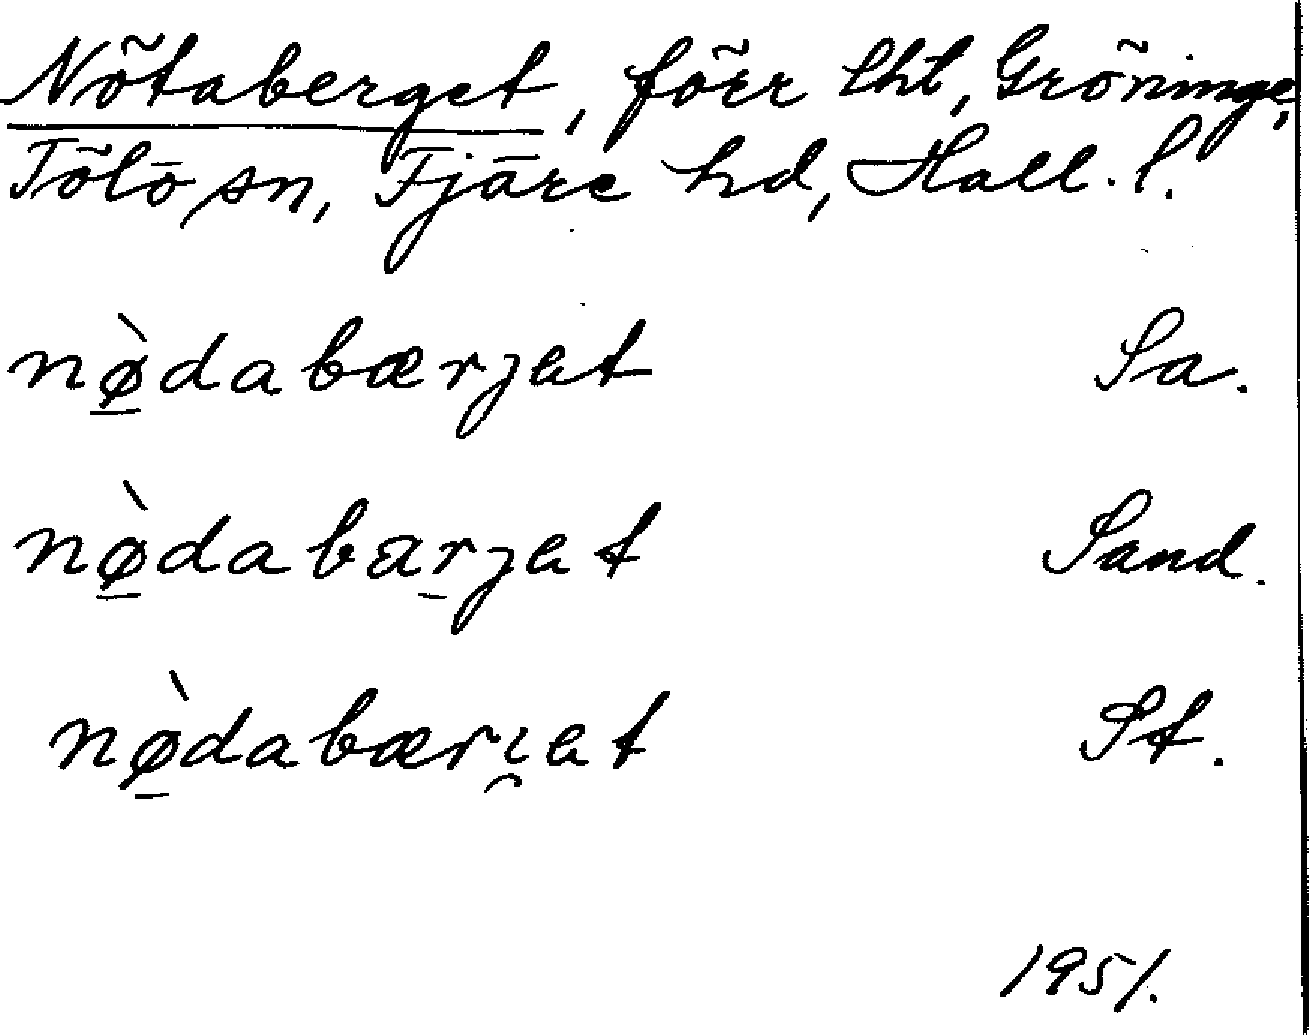 Nötaberget, förr lht, Gröninge,
Tölö sn, Fjäre hd, Hall. l.
nø̲̀dabærjet Sa.
nø̲̀dabær̲jet Sand.
nø̲̀dabæri̯et St.
1951.